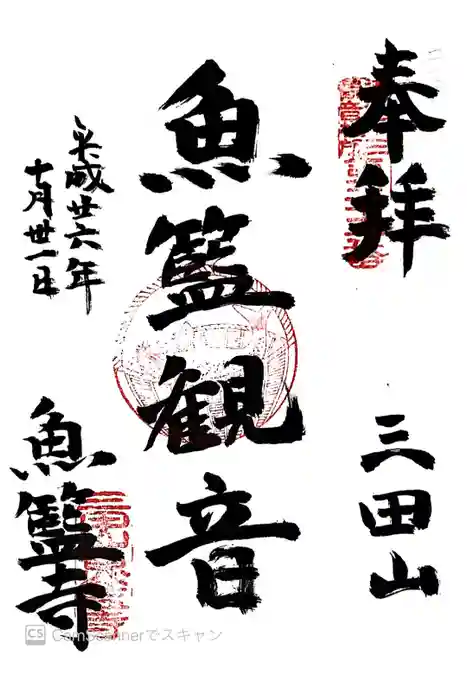 奉拝
三田山
魚籃観音
平成廿六年
十月卅一日
魚籃寺
CS CamScannerでスキャン